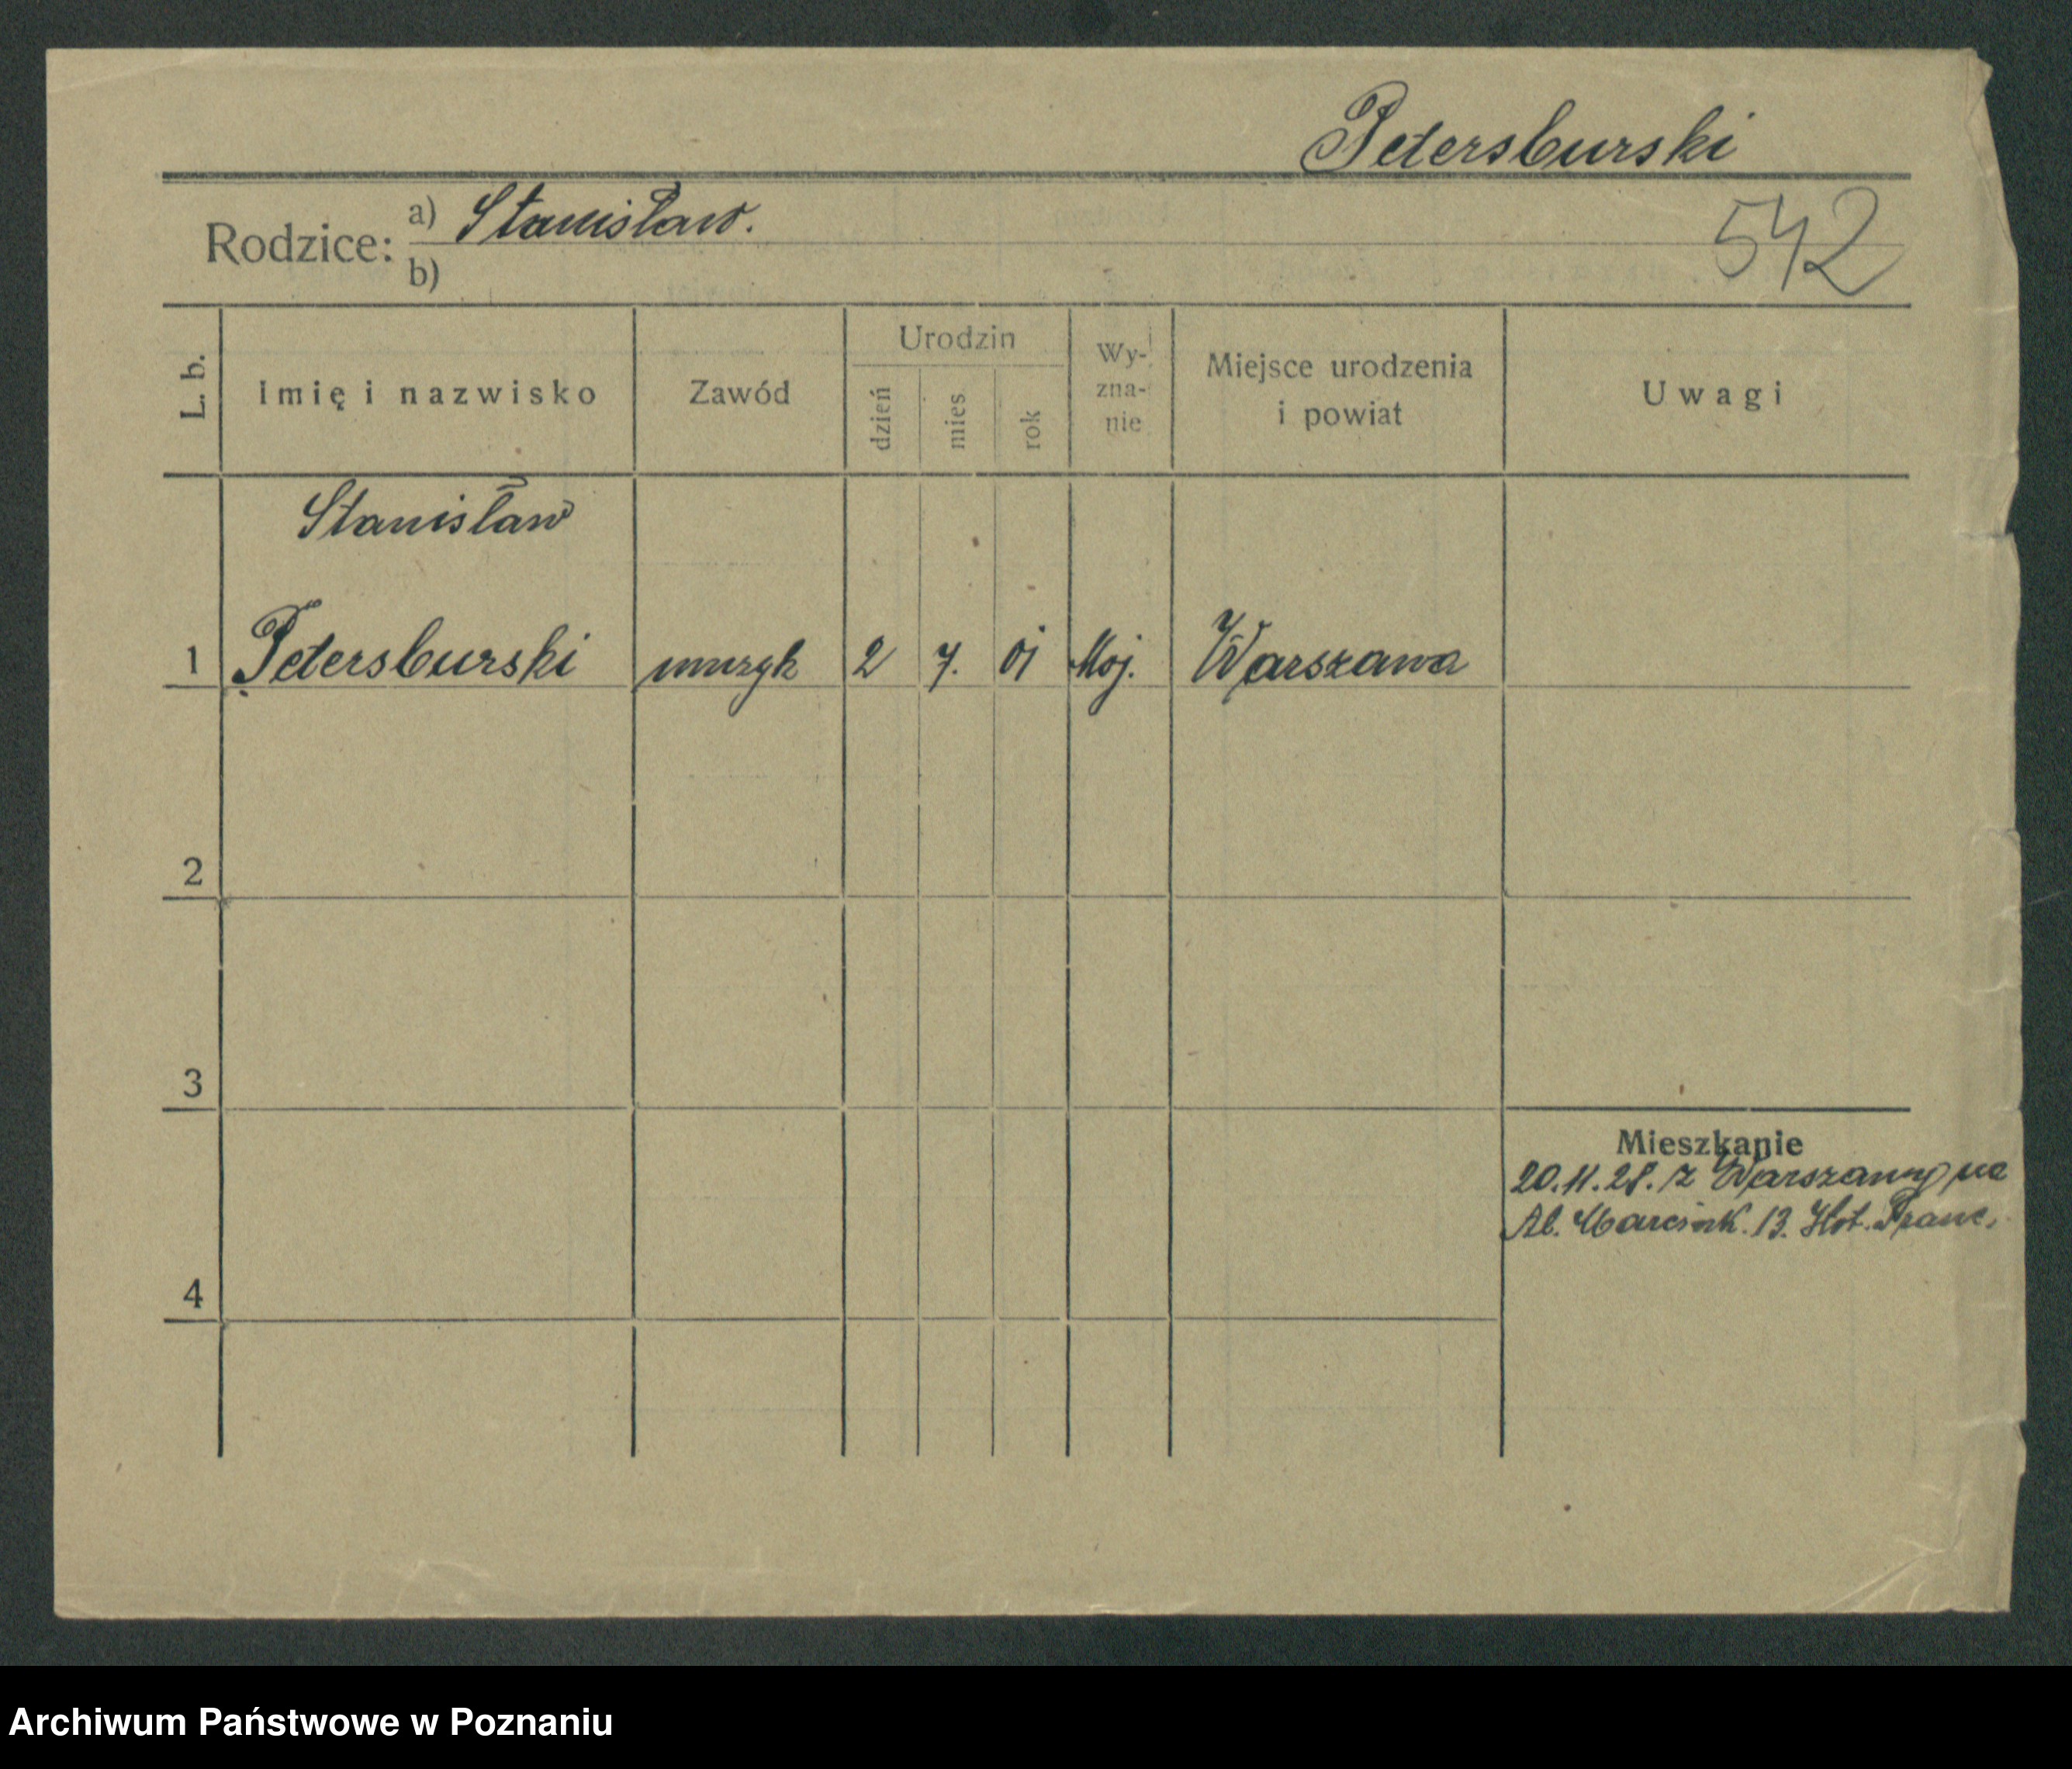 Petersburski
Rodzice: a) Stanisław.
b)
542
L. b.
Imię i nazwisko
Zawód
Urodzin
dzień
mies.
rok
Wy-
zna-
nie
Miejsce urodzenia
i powiat
Uwagi
Stanisław
1 Petersburski muzyk 2 7. 01 Moj. Warszawa
2
3
Mieszkanie
20.11.28. z Warszawy na
Al. Marcink. 13. Hot. Franc.
4
Archiwum Państwowe w Poznaniu